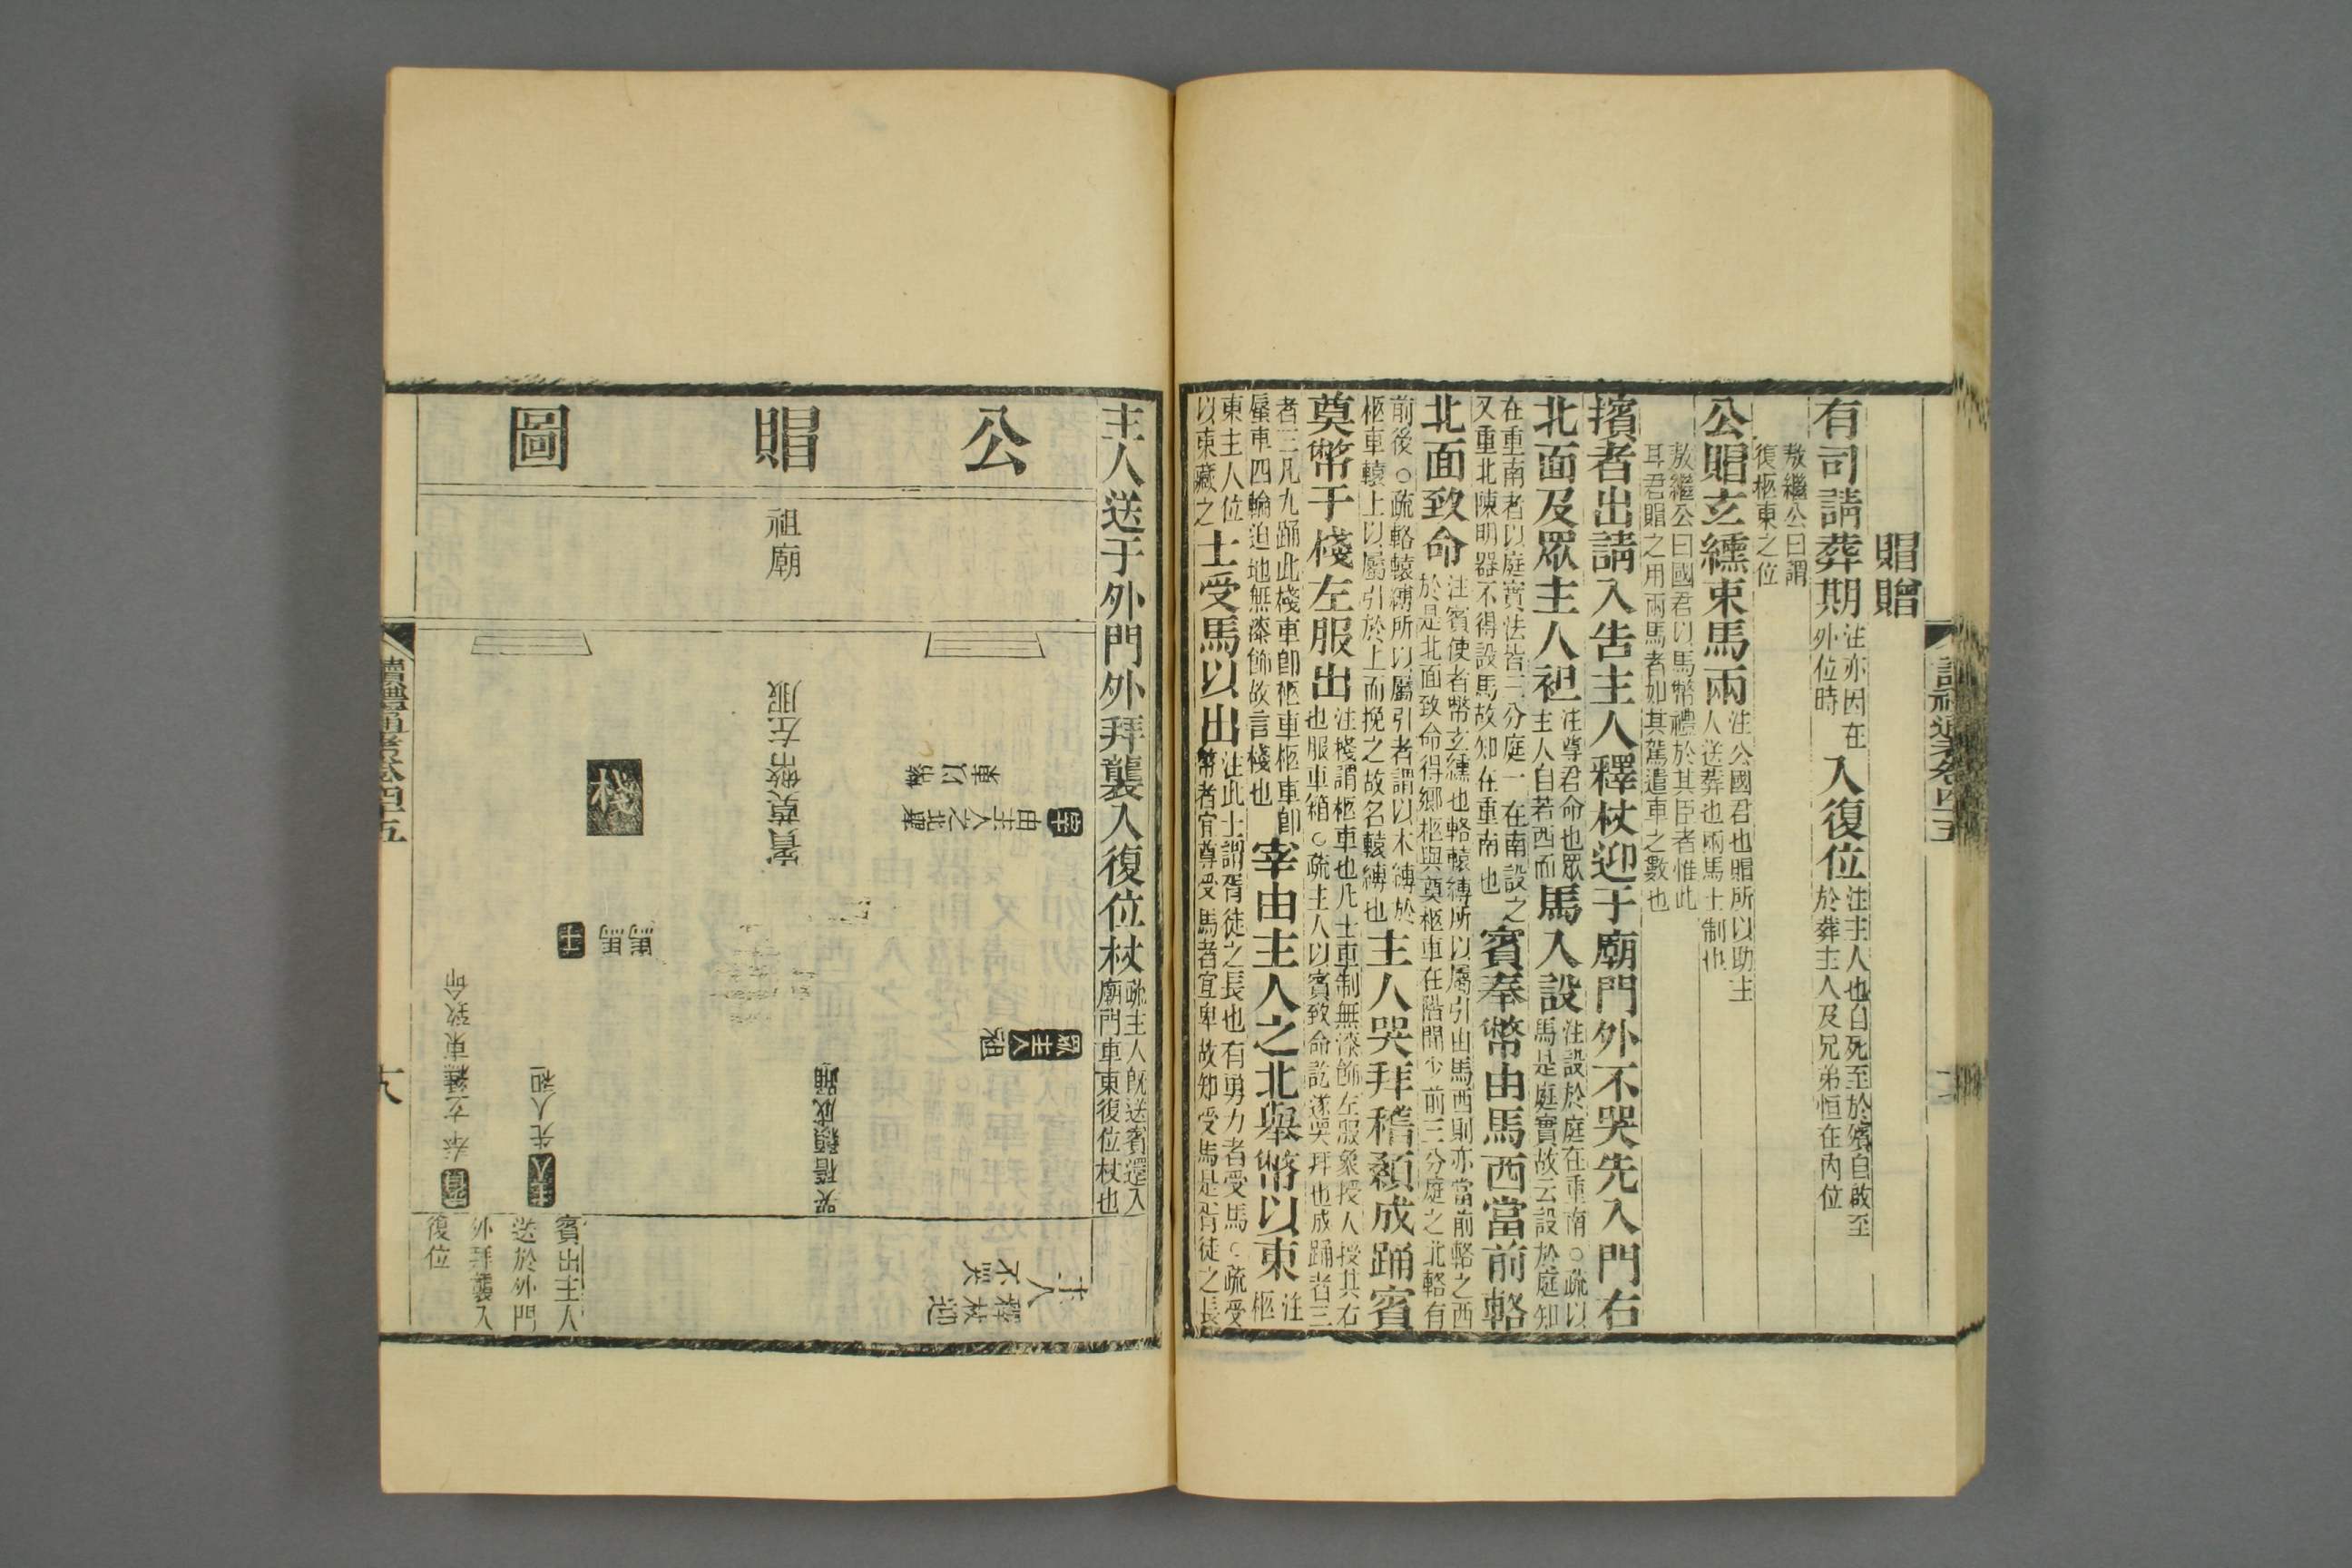 賵贈
有司請葬期注亦因在外位時入復位注主人也自死至於殯自啟至於葬主人及兄弟恒在內位
敖繼公曰謂復柩東之位
公賵玄纁束馬兩注公國君也賵所以助主人送葬也兩馬士制也
敖繼公曰國君以馬幣禮於其臣者惟此耳君賵之用兩馬者如其駕遣車之數也
擯者出請入告主人釋杖迎于廟門外不哭先入門右
北面及眾主人袒注尊君命也眾主人自若西面馬入設注設於庭在重南○疏以馬是庭實故云設於庭知
在重南者以庭實法皆三分庭一在南設之又重北陳明器不得設馬故知在重南也賓奉幣由馬西當前輅
北面致命注賓使者幣玄纁也輅轅縛所以屬引由馬西則亦當前輅之西於是北面致命得鄉柩與奠柩車在階間少前三分庭之北輅有
前後○疏輅轅縛所以屬引者謂以木縛於柩車轅上以屬引於上而挽之故名轅縛也主人哭拜稽顙成踊賓
奠幣于棧左服出注棧謂柩車也凡士車制無漆飾左服象授人授其右也服車箱○疏主人以賓致命訖遂哭拜也成踊者三
者三凡九踊此棧車卽柩車柩車卽蜃車四輪迫地無漆飾故言棧也宰由主人之北舉幣以東注柩
東主人位以東藏之士受馬以出注此士謂胥徒之長也有勇力者受馬○疏受幣者宜尊受馬者宜卑故知受馬是胥徒之長
讀禮通考卷四十五
主人送于外門外拜襲入復位杖疏主人既送賓還入廟門車東復位杖也
公賵圖
祖廟
宰由主人之北舉幣以東
眾主人袒
主人釋杖迎不哭
賓奠幣左服
哭稽顙成踊
棧
馬馬
士
主人先入袒
賓奉玄纁束致命
賓出主人
送於外門
外拜襲入
復位
讀禮通考卷四十五
六